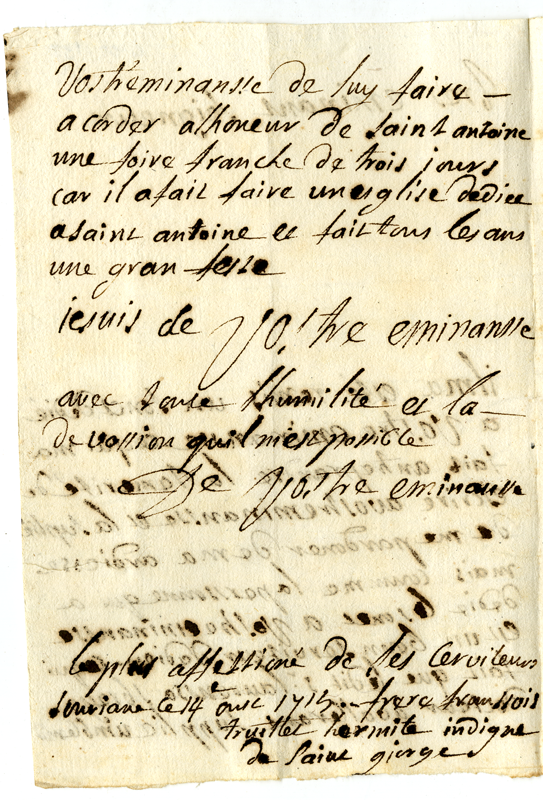 Vostreminansse de luy faire –
acorder alhoneur de saint antoine
une foire franche de trois jours
car il afait faire uneglise dediee
asaint antoine et fait tous les ans
une gran feste
iesuis de Vostre eminansse
avec toute lhumilité et la –
devossion quil mest possible
De Vostre eminansse
le plus affestioné de ses Cerviteurs
le 14e 1715 frere franssois
truillet hermite indigne
de saint giorge